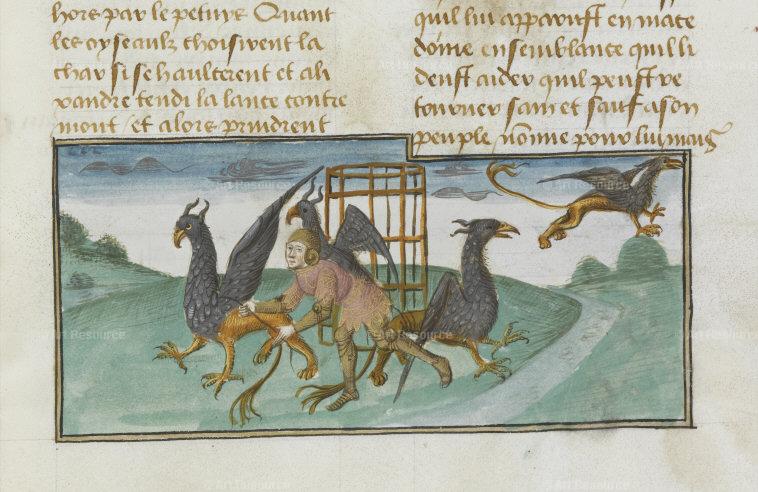 hors par le pertuys Quant
les oyseaulz choisirent la
char si se haulcerent et ali
xandre tendi la lance contre
mont / et alors prindrent
quil lui apparust en mace
doine en semblance quil li
deust aider quil peust re
tourner sain et sauf a son
peuple no͞me pour lui mag
Art Resource